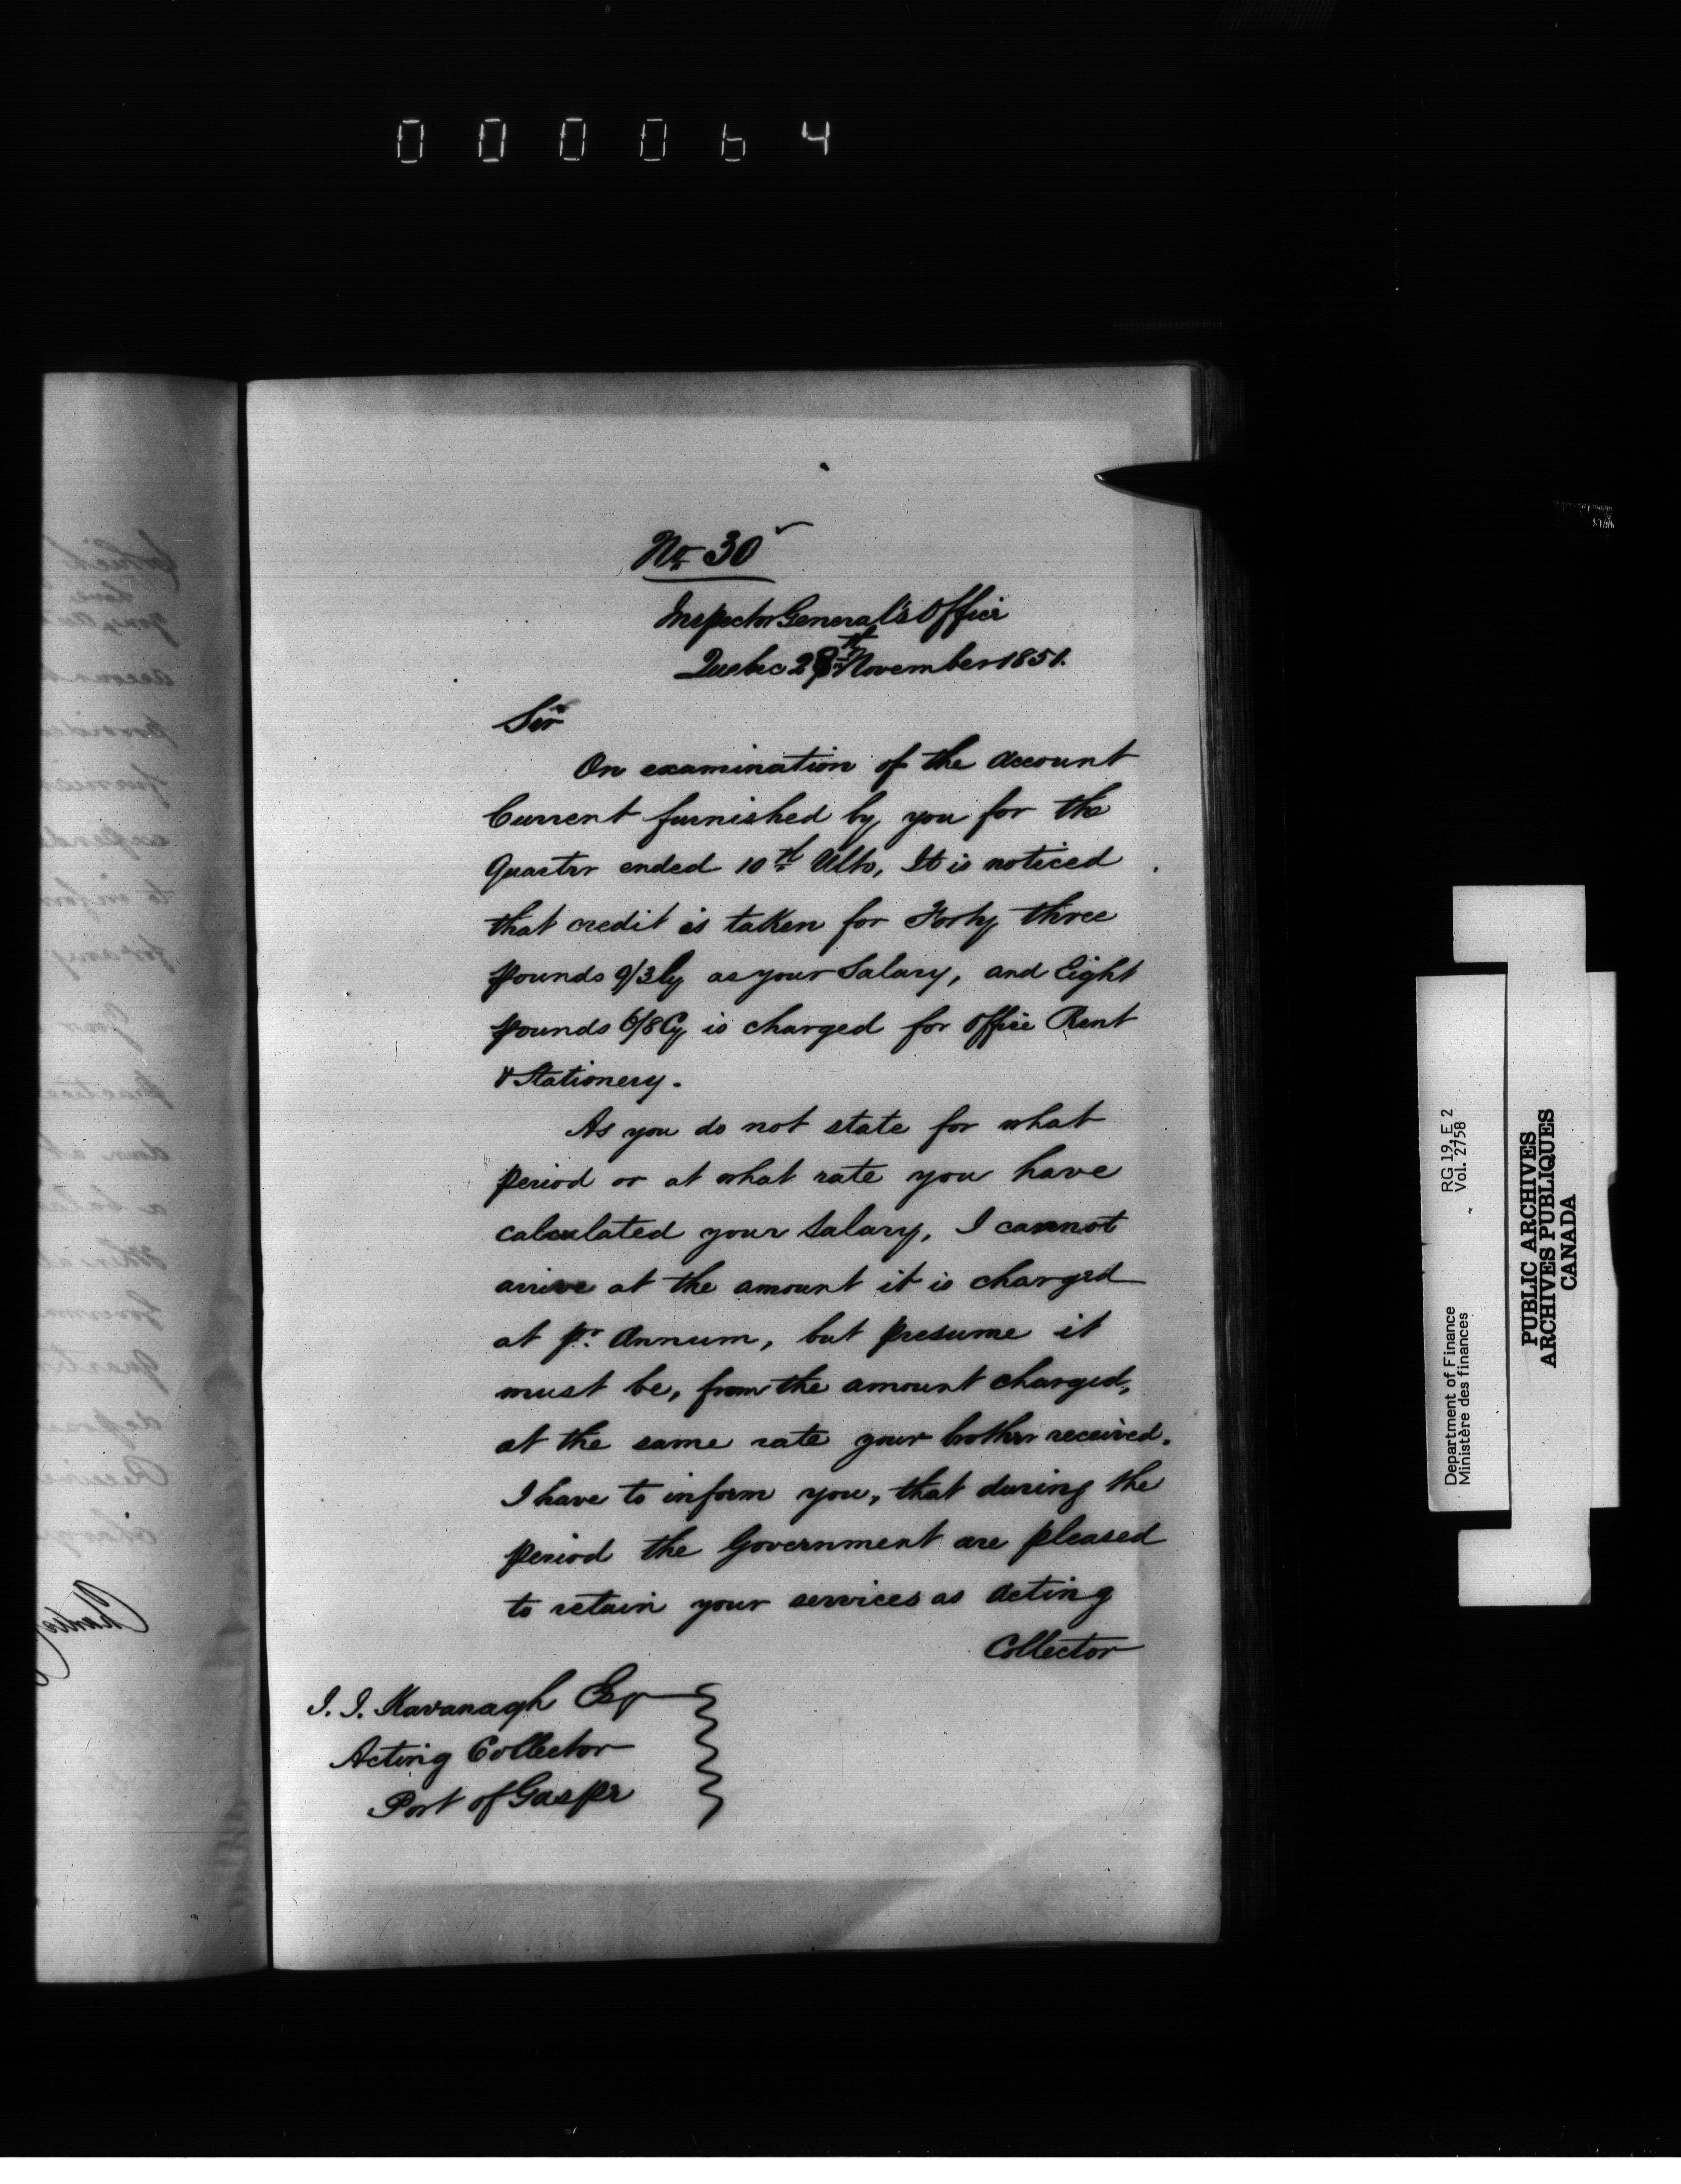 000064
No. 30
Inspector General's Office
Quebec 28th November 1851.
Sir
On examination of the Account
Current furnished by you for the
Quarter ended 10th Ulto, It is noticed
that credit is taken for Forty three
pounds 9/3 Cy as your Salary, and Eight
pounds 6/8 Cy is charged for Office Rent
& Stationery.
As you do not state for what
period or at what rate you have
calculated your Salary, I cannot
arrive at the amount it is charged
at pr. Annum, but presume it
must be, from the amount charged,
at the same rate your brother received.
I have to inform you, that during the
period the Government are pleased
to retain your services as Acting
Collector
J. J. Kavanagh Esqr
Acting Collector
Port of Gaspe
Department of Finance
Ministère des finances
RG 19, E 2
Vol. 2758
PUBLIC ARCHIVES
ARCHIVES PUBLIQUES
CANADA